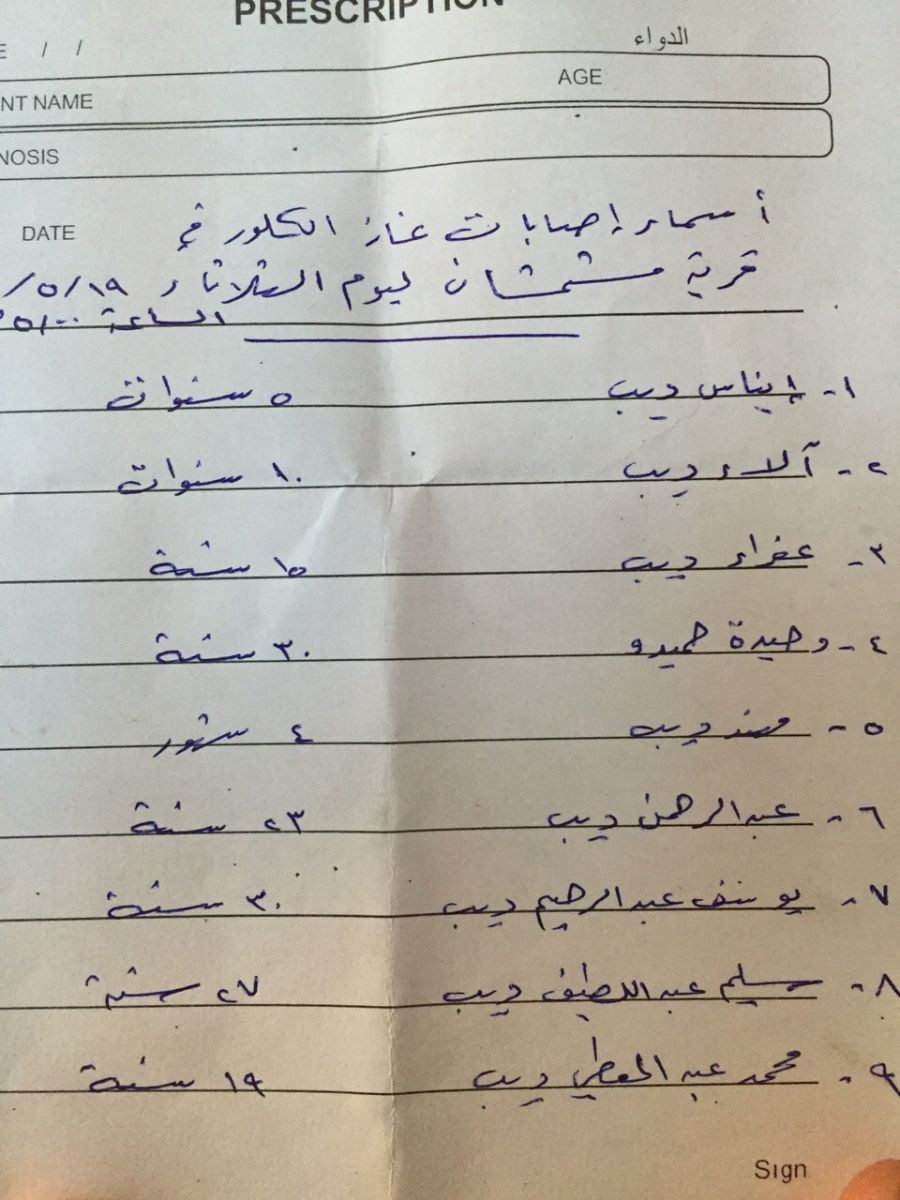 PRESCRIPTION
الدواء
E / /
NT NAME
AGE
NOSIS
DATE
أسماء إصابات غاز الكلور في
قرية مشمشان ليوم الثلاثاء ١٩/٥/
الساعة
١- إيناس ديب ٥ سنوات
٢- آلاء ديب ١٠ سنوات
٣- عفراء ديب ١٥ سنة
٤- وحيدة حميدو ٣٠ سنة
٥- مهند ديب ٤ شهور
٦- عبدالرحمن ديب ٢٣ سنة
٧- يوسف عبدالرحيم ديب ٣٠ سنة
٨- سليم عبداللطيف ديب ٢٧ سنة
٩- محمد عبدالمعطي ديب ١٩ سنة
Sign